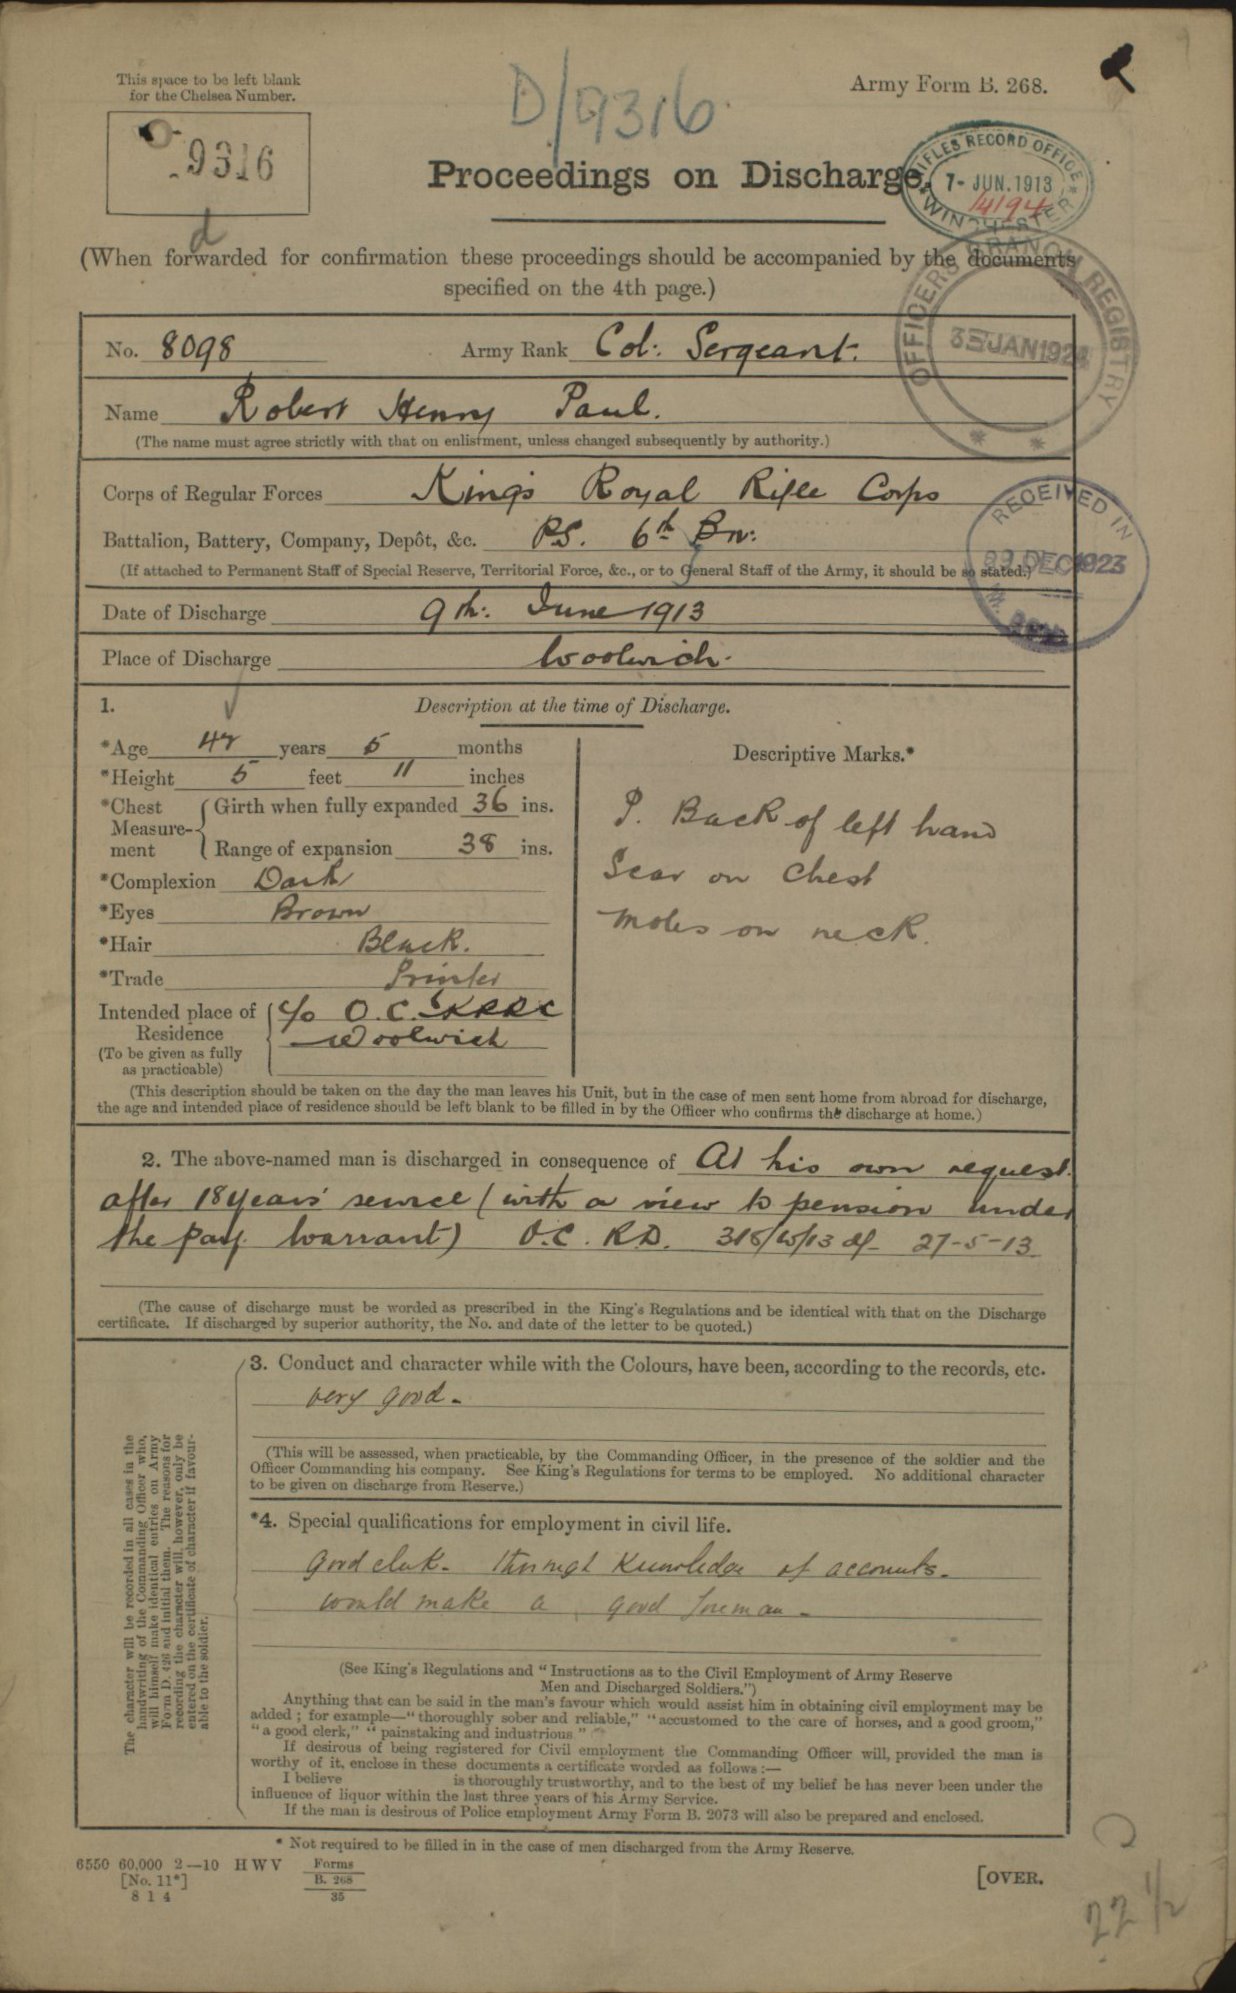 This space to be left blank
for the Chelsea Number.
Army Form B. 268.
D/9316
9316
Proceedings on Discharge.
RIFLES RECORD OFFICE
7- JUN. 1913
14194
WINCHESTER
d
(When forwarded for confirmation these proceedings should be accompanied by the documents
specified on the 4th page.)
OFFICERS BRANCH REGISTRY
JAN 1924
No. 8098 Army Rank Col: Sergeant.
Name Robert Henry Paul.
(The name must agree strictly with that on enlistment, unless changed subsequently by authority.)
Corps of Regular Forces King's Royal Rifle Corps
RECEIVED IN
DEC 1923
Battalion, Battery, Company, Depôt, &c. P.S. 6th Bn:
(If attached to Permanent Staff of Special Reserve, Territorial Force, &c., or to General Staff of the Army, it should be so stated.)
Date of Discharge 9th: June 1913
Place of Discharge Woolwich.
1. Description at the time of Discharge.
*Age years 5 months
*Height 5 feet 11 inches
*Chest Measure-ment
Girth when fully expanded 36 ins.
Range of expansion 38 ins.
*Complexion Dark
*Eyes Brown
*Hair Black.
*Trade Printer
Intended place of Residence
(To be given as fully as practicable)
c/o O.C. 6 KRRC
Woolwich
Descriptive Marks.*
P. Back of left hand
Scar on Chest
Moles on neck.
(This description should be taken on the day the man leaves his Unit, but in the case of men sent home from abroad for discharge,
the age and intended place of residence should be left blank to be filled in by the Officer who confirms the discharge at home.)
2. The above-named man is discharged in consequence of At his own request
after 18 years' service (with a view to pension under
the Pay Warrant) O.C. R.D. 318/W/13 d/- 27-5-13
(The cause of discharge must be worded as prescribed in the King's Regulations and be identical with that on the Discharge
certificate. If discharged by superior authority, the No. and date of the letter to be quoted.)
The character will be recorded in all cases in the
handwriting of the Commanding Officer who,
will himself make identical entries on Army
Form D. 426 and initial them. The reasons for
recording the character will, however, only be
entered on the certificate of character if favour-
able to the soldier.
3. Conduct and character while with the Colours, have been, according to the records, etc.
very good.
(This will be assessed, when practicable, by the Commanding Officer, in the presence of the soldier and the
Officer Commanding his company. See King's Regulations for terms to be employed. No additional character
to be given on discharge from Reserve.)
*4. Special qualifications for employment in civil life.
Good clerk. Thorough Knowledge of accounts.
would make a good foreman.
(See King's Regulations and "Instructions as to the Civil Employment of Army Reserve
Men and Discharged Soldiers.")
Anything that can be said in the man's favour which would assist him in obtaining civil employment may be
added; for example—"thoroughly sober and reliable," "accustomed to the care of horses, and a good groom,"
"a good clerk," "painstaking and industrious"
If desirous of being registered for Civil employment the Commanding Officer will, provided the man is
worthy of it, enclose in these documents a certificate worded as follows:—
I believe is thoroughly trustworthy, and to the best of my belief he has never been under the
influence of liquor within the last three years of his Army Service.
If the man is desirous of Police employment Army Form B. 2073 will also be prepared and enclosed.
* Not required to be filled in in the case of men discharged from the Army Reserve.
6550 60,000 2—10 H W V Forms
[No. 11*] B. 268
8 1 4 35
[OVER.
22 1/2